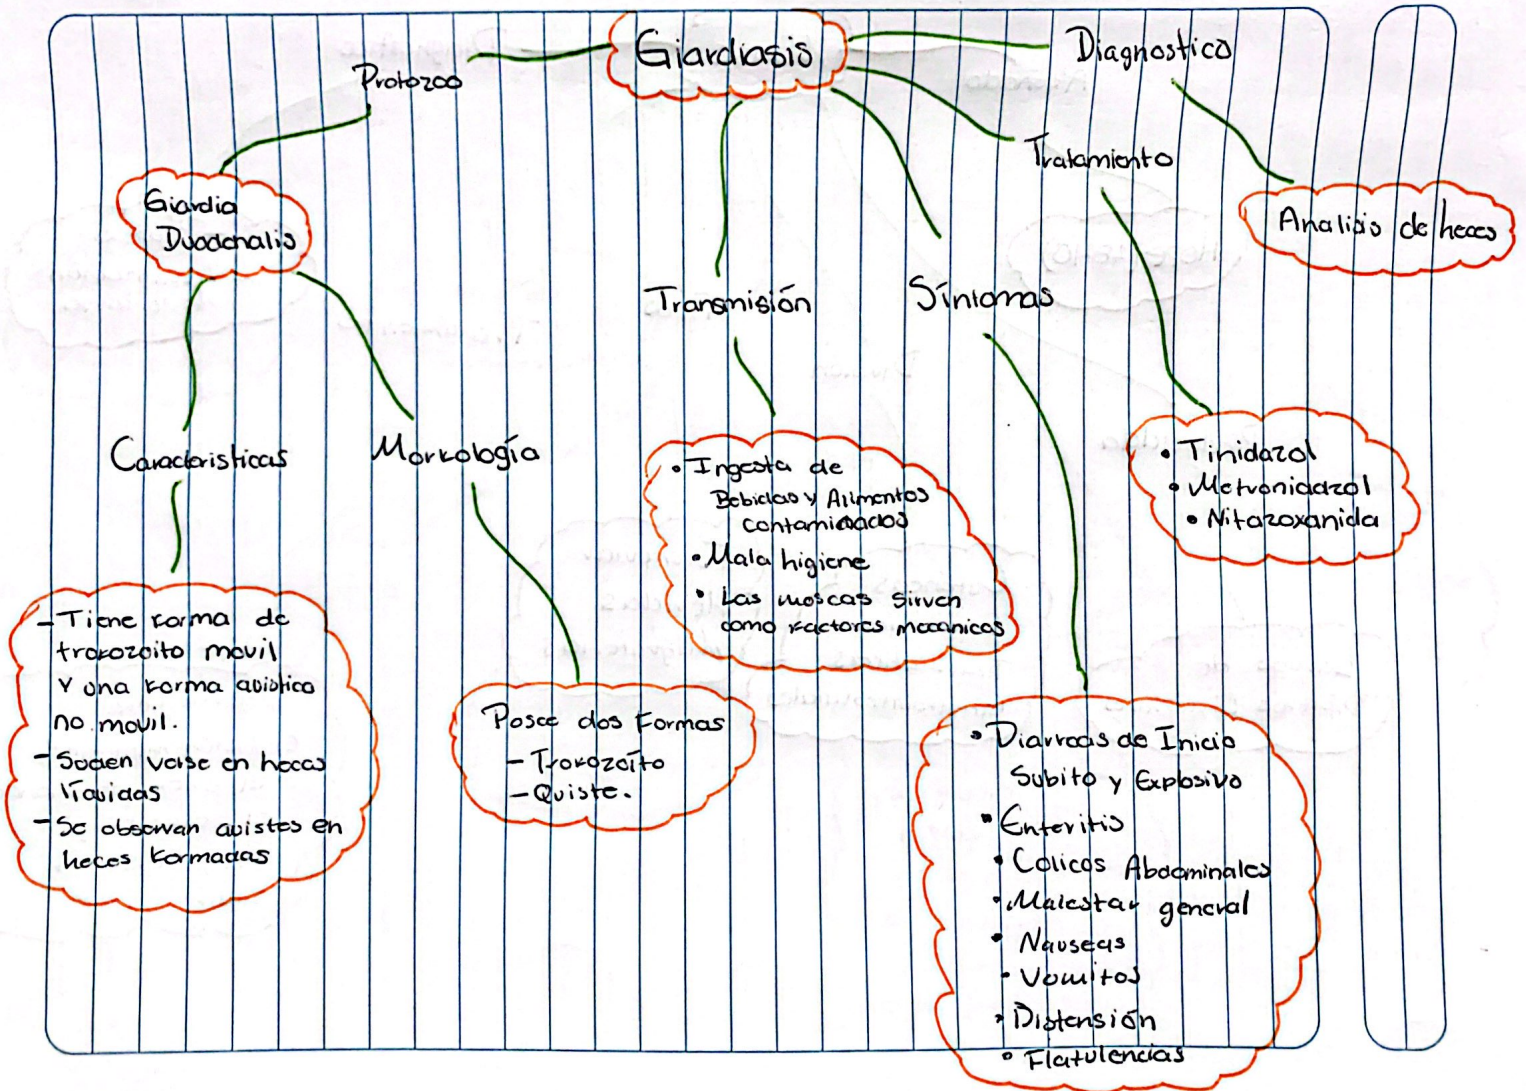 Giardiasis
Protozoo
Giardia
Duodenalis
Caracteristicas
- Tiene forma de
trofozoito movil
y una forma quistica
no movil.
- Suelen verse en heces
líquidas
- Se observan quistes en
heces formadas
Morfología
Posee dos Formas
- Trofozoíto
- Quiste.
Transmisión
• Ingesta de
Bebidas y Alimentos
contaminados
• Mala higiene
• Las moscas sirven
como factores mecanicos
Síntomas
• Diarreas de Inicio
Subito y Explosivo
• Enteritis
• Colicos Abdominales
• Malestar general
• Nauseas
• Vomitos
• Distensión
• Flatulencias
Tratamiento
• Tinidazol
• Metronidazol
• Nitazoxanida
Diagnostico
Analisis de heces